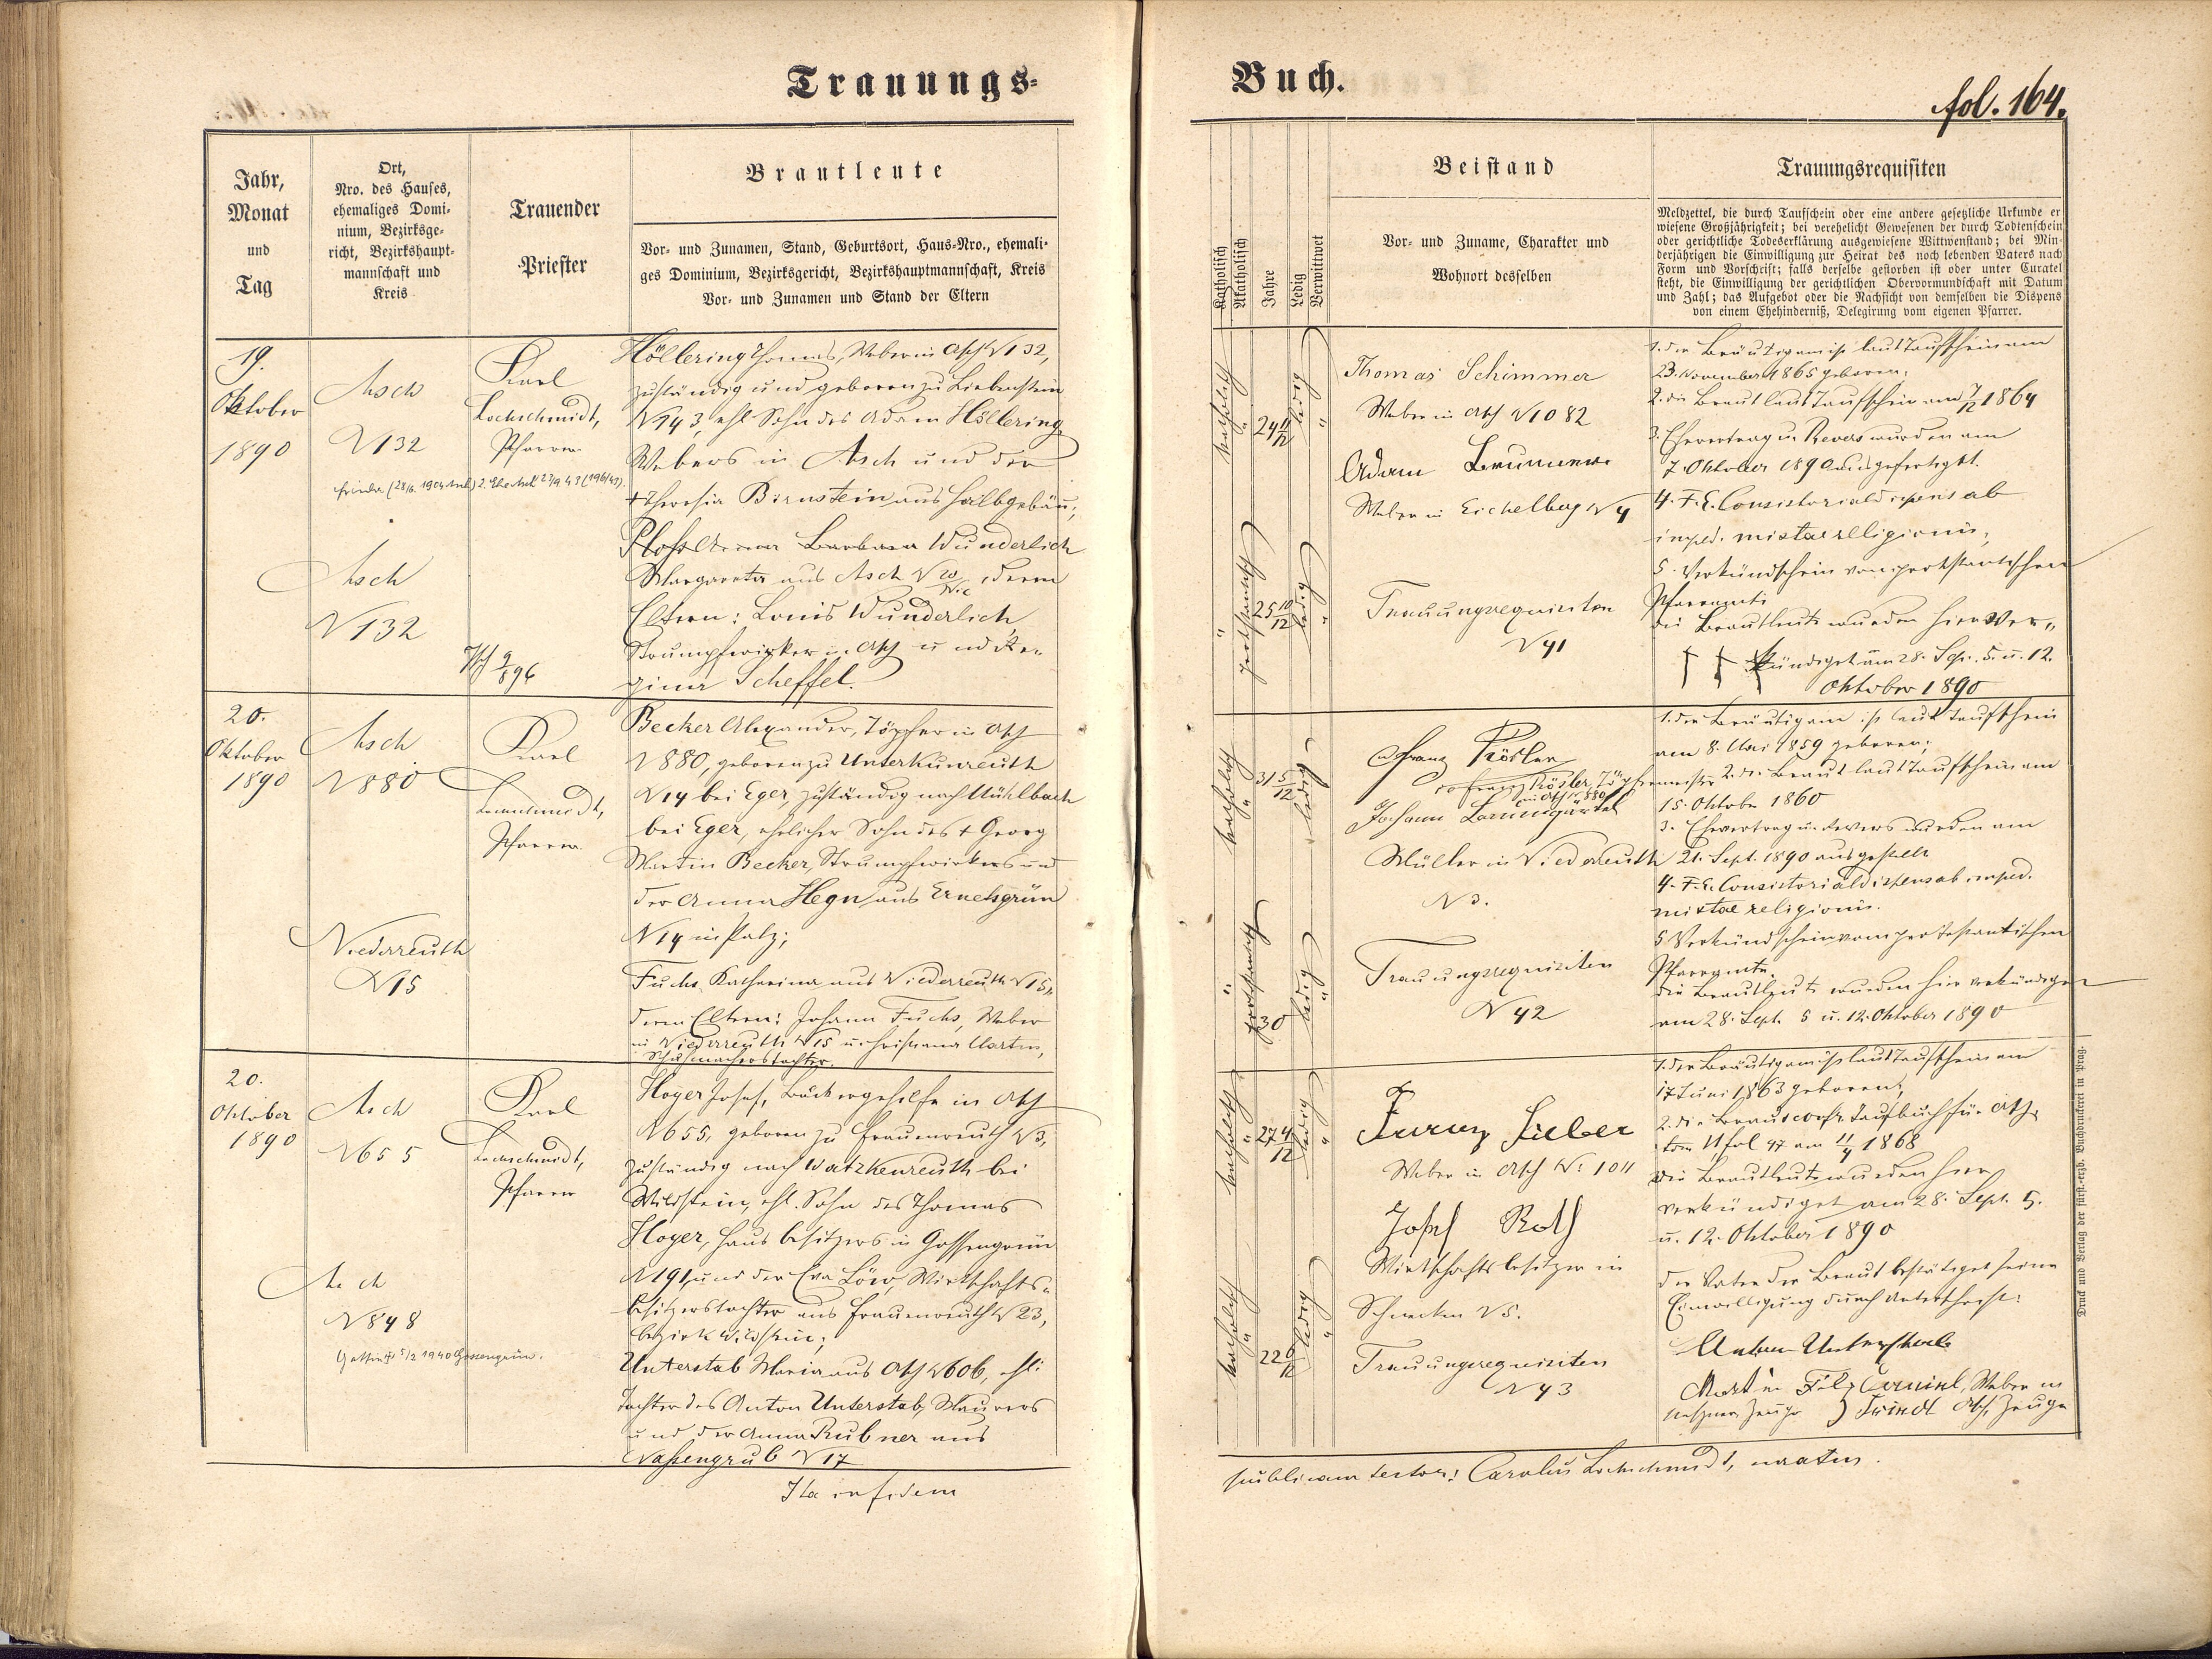 Trauungs-
Buch.
fol. 164.
Jahr,
Monat
und
Tag
Ort,
Nro. des Hauses,
ehemaliges Domi-
nium, Bezirksge-
richt, Bezirkshaupt-
mannschaft und
Kreis
Trauender
Priester
Brautleute
Vor- und Zunamen, Stand, Geburtsort, Haus-Nro., ehemali-
ges Dominium, Bezirksgericht, Bezirkshauptmannschaft, Kreis
Vor- und Zunamen und Stand der Eltern
Katholisch
Akatholisch
Jahre
Ledig
Verwittwet
Beistand
Vor- und Zuname, Charakter und
Wohnort desselben
Trauungsrequisiten
Meldzettel, die durch Taufschein oder eine andere gesetzliche Urkunde er
wiesene Großjährigkeit; bei verehelicht Gewesenen der durch Todtenschein
oder gerichtliche Todeserklärung ausgewiesene Wittwenstand; bei Min-
derjährigen die Einwilligung zur Heirat des noch lebenden Vaters nach
Form und Vorschrift; falls derselbe gestorben ist oder unter Curatel
steht, die Einwilligung der gerichtlichen Obervormundschaft mit Datum
und Zahl; das Aufgebot oder die Nachsicht von demselben die Dispens
von einem Ehehinderniß, Delegirung vom eigenen Pfarrer.
19.
Oktober
1890
Asch
N 132
Asch
N 132
Karl
Lochschmidt,
Pfarrer
Höllering Thomas, Weber in Asch N 132,
zuständig und geboren zu Liebenstein
N 143, ehl. Sohn des Adam Höllering
Webers in Asch und der
+ Theresia Birnstein aus Halbgebäu;
Ploß Anna Barbara Wunderlich
Margareta aus Asch N 20, deren
Eltern: Louis Wunderlich
Strumpfwirker in Asch und Re-
gina Scheffel.
katholisch
24 11/12
ledig
protestantisch
25 10/12
ledig
Thomas Schimmer
Weber in Asch N 1082
Adam Brunner
Weber in Eichelberg N 4
Trauungsrequisiten
N 41
1. der Bräutigam ist laut Taufschein am
23. November 1865 geboren;
2. die Braut laut Taufschein am 7/12 1864
3. Ehevertrag u. Revers wurden am
7. Oktober 1890 ausgefertigt.
4. F. E. Consistorialdispens ab
imped. mixtae religionis;
5. Verkündschein vom protestantischen
Pfarramte
die Brautleute wurden hier ver-
kündiget am 28. Sep. 5. u. 12.
Oktober 1890
20.
Oktober
1890
Asch
N 880
Niederreuth
N 15
Karl
Lochschmidt,
Pfarrer
Becker Alexander, Töpfer in Asch
N 880, geboren zu Unterkunreuth
N 14 bei Eger, zuständig nach Mühlbach
bei Eger, ehelicher Sohn des + Georg
Martin Becker, Strumpfwirkers und
der Anna Hegn aus Ernetsgrün
N 14 in Palz;
Fuchs Katharina aus Niederreuth N 15,
deren Eltern: Johann Fuchs, Weber
in Niederreuth N 15 u. Christiana Martin,
Schuhmacherstochter.
katholisch
31 5/12
ledig
protestantisch
30
ledig
Franz Rösler
Franz Rösler, Töpfermeister
in Asch N 880
Johann Baumgärtel
Müller in Niederreuth
N 3.
Trauungsrequisiten
N 42
1. der Bräutigam ist laut Taufschein
am 8. Mai 1859 geboren;
2. die Braut laut Taufschein am
15. Oktober 1860
3. Ehevertrag u. Revers wurden am
21. Sept. 1890 ausgestellt
4. F. E. Consistorialdispens ab imped.
mixtae religionis.
5 Verkündschein vom protestantischen
Pfarramte.
die Brautleute wurden hier verkündiget
am 28. Sept. 5 u. 12. Oktober 1890
20.
Oktober
1890
Asch
N 655
Asch
N 848
Karl
Lochschmidt,
Pfarrer
Hoyer Josef, Bäckergehilfe in Asch
N 655, geboren zu Frauenreuth N 3,
zuständig nach Watzkenreuth bei
Wildstein, ehl. Sohn des Thomas
Hoyer, Hausbesitzers in Gossengrün
N 191, und der Eva Löw, Wirtschafts-
besitzerstochter aus Frauenreuth N 23,
Bezirk Wildstein;
Unterstab Maria aus Asch N 606, ehl.
Tochter des Anton Unterstab, Maurers
und der Anna Rubner aus
Nassengrub N 17
katholisch
27 4/12
ledig
katholisch
22 6/12
ledig
Franz Lieber
Weber in Asch N: 1011
Josef Roth
Wirtschaftsbesitzer in
Schnecken N 5.
Trauungsrequisiten
N 43
1. der Bräutigam ist laut Taufschein am
17 Juni 1863 geboren;
2. die Braut conf. Taufbuch für Asch
tom 11 fol 47 am 11/4 1868
die Brautleute wurden hier
verkündiget am 28. Sept. 5.
u. 12. Oktober 1890
der Vater der Braut bestätiget seine
Einwilligung durch Unterschrift:
Anton Unterstab
Ita in fidem
publicam testor: Carolus Lochschmidt, curatus.
Druck und Verlag der fürst.-erzb. Buchdruckerei in Prag.